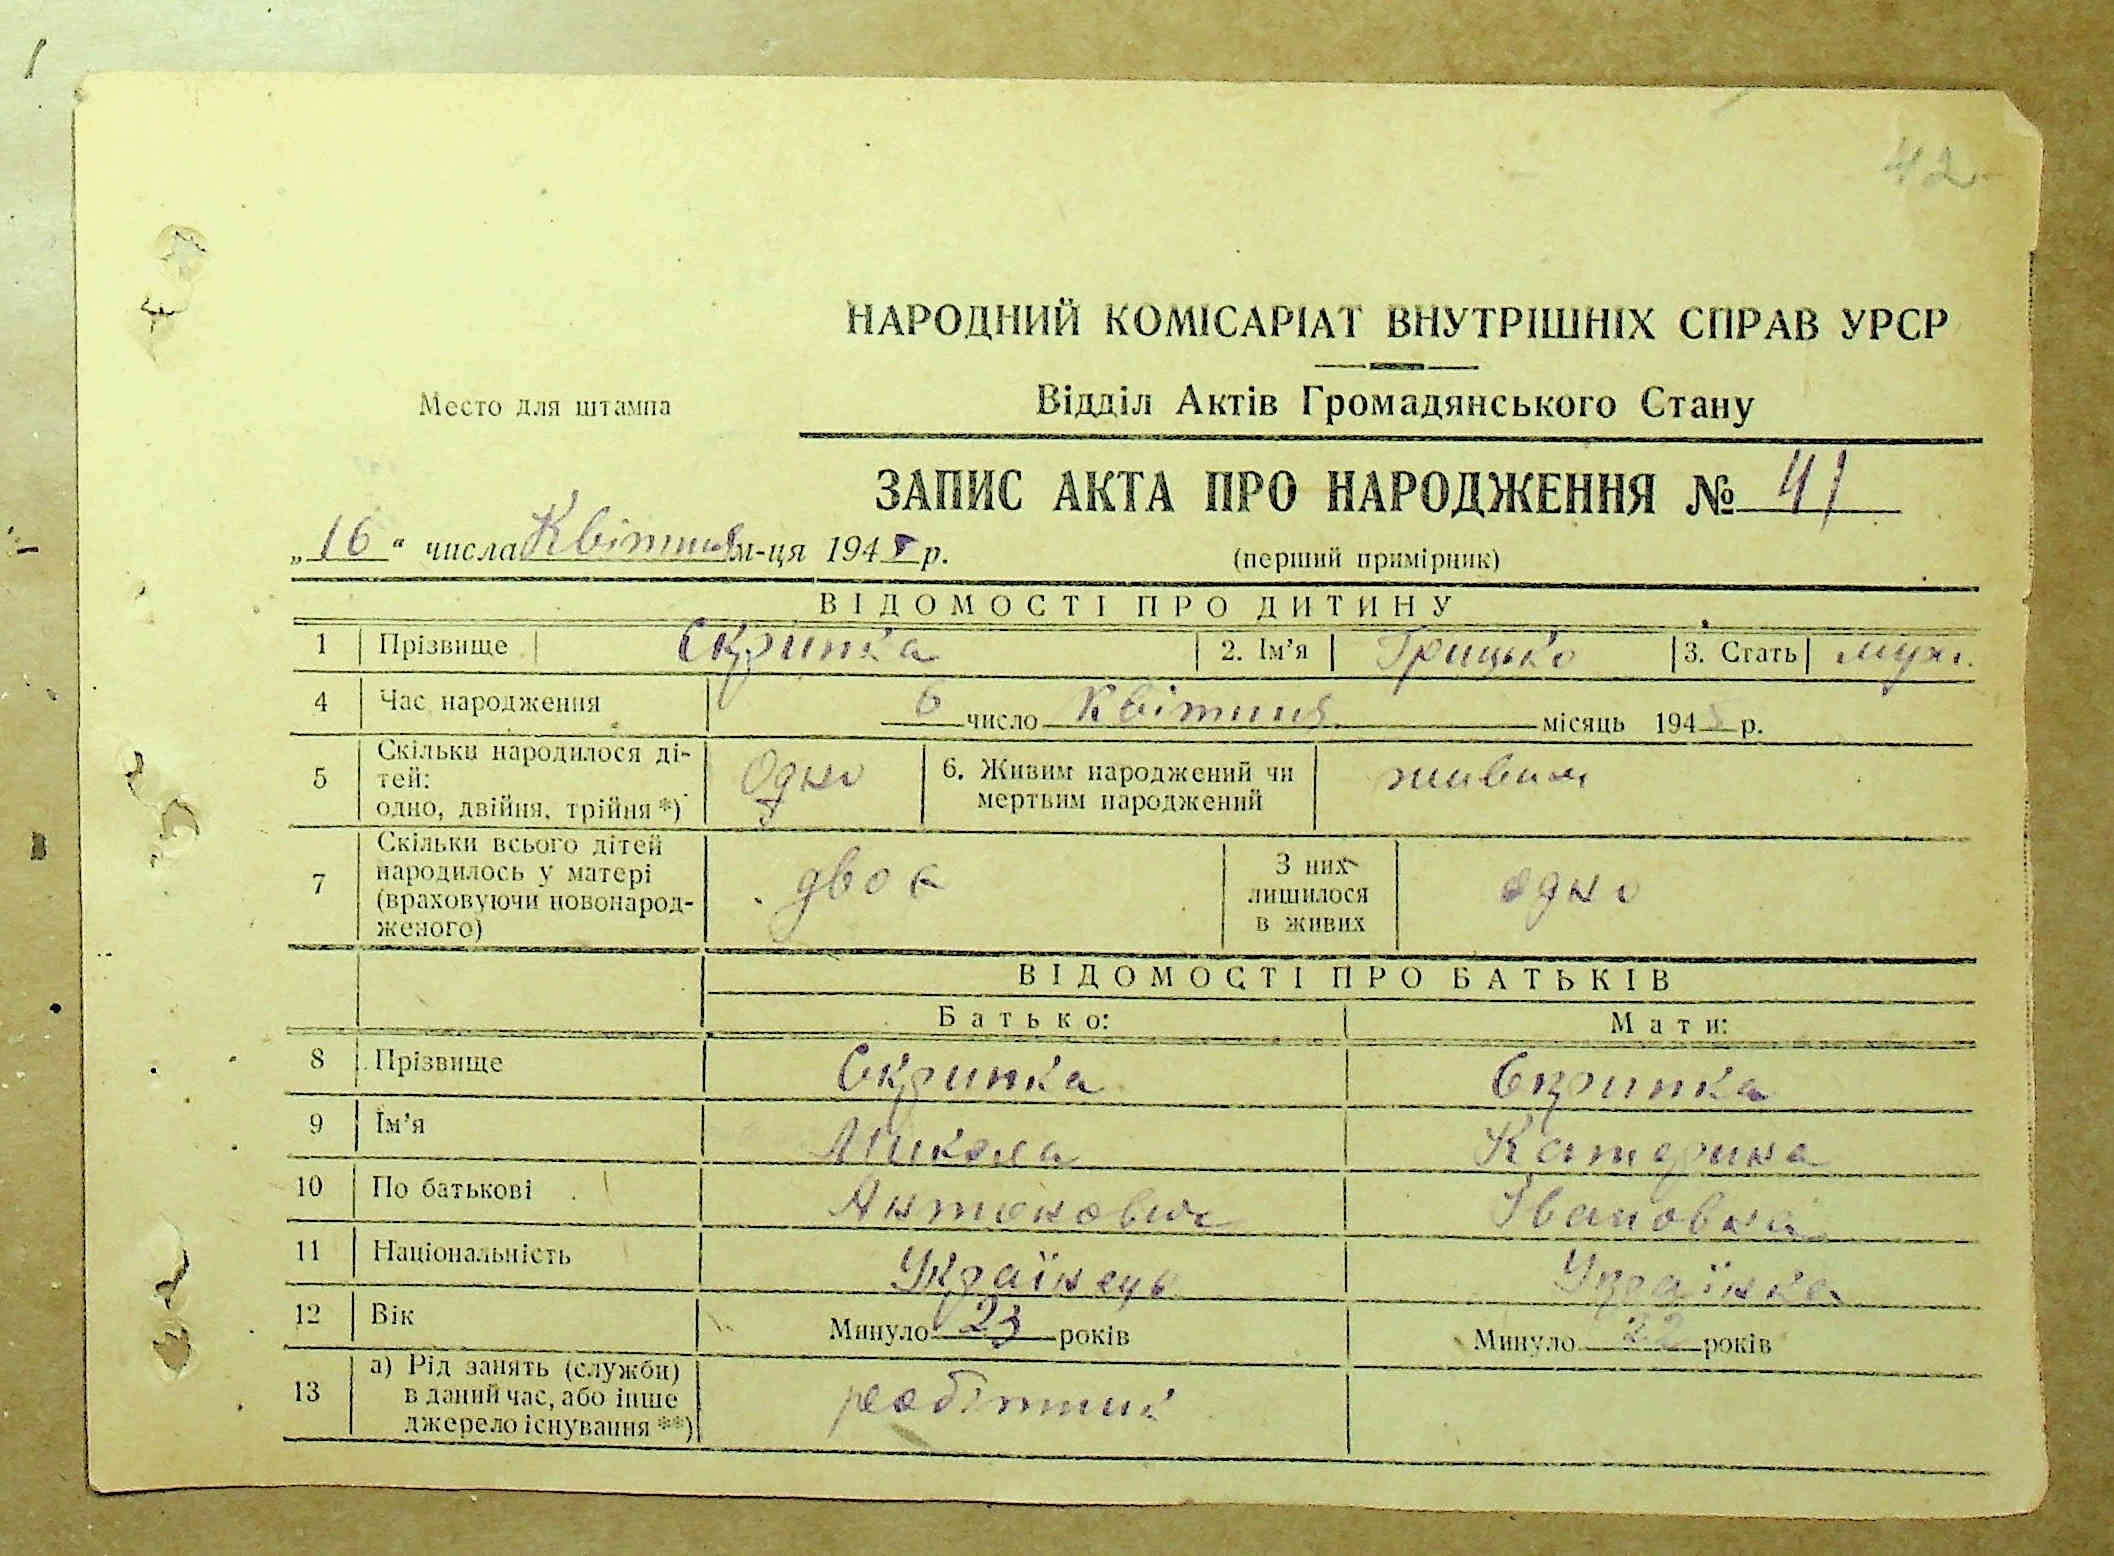 42
НАРОДНИЙ КОМІСАРІАТ ВНУТРІШНІХ СПРАВ УРСР
Место для штампа
Відділ Актів Громадянського Стану
ЗАПИС АКТА ПРО НАРОДЖЕННЯ № 41
„16“ числа Квітня м-ця 1945 р.
(перший примірник)
ВІДОМОСТІ ПРО ДИТИНУ
1 Прізвище Скрипка 2. Ім’я Грицько 3. Стать муж.
4 Час народження 6 число Квітня місяць 1945 р.
5 Скільки народилося ді-
тей:
одно, двійня, трійня *) Одно 6. Живим народжений чи
мертвим народжений живим
7 Скільки всього дітей
народилось у матері
(враховуючи новонарод-
женого) двоє З них
лишилося
в живих одно
ВІДОМОСТІ ПРО БАТЬКІВ
Батько: Мати:
8 Прізвище Скрипка Скрипка
9 Ім’я Микола Катерина
10 По батькові Антонович Івановна
11 Національність Українець Українка
12 Вік Минуло 23 років Минуло 22 років
13 а) Рід занять (служби)
в даний час, або інше
джерело існування **)